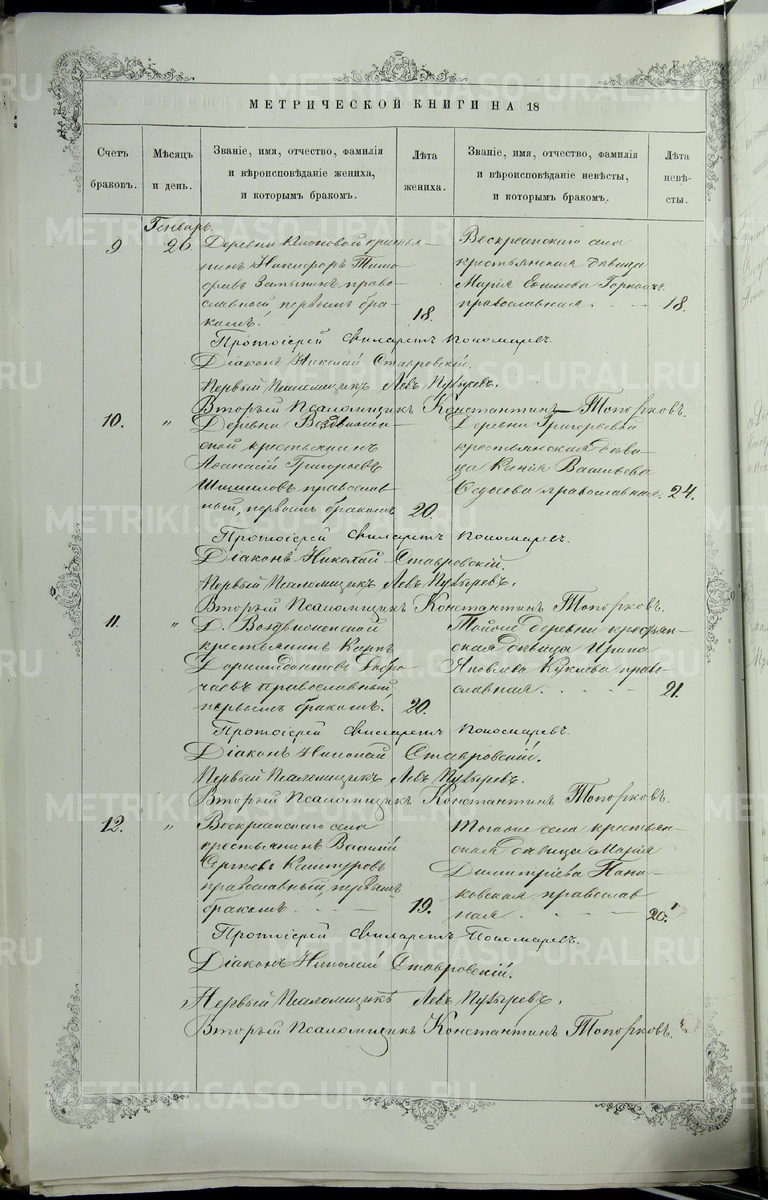 МЕТРИЧЕСКОЙ КНИГИ НА 18
Счетъ браковъ.
Мѣсяцъ и день.
Званіе, имя, отчество, фамилія и вѣроисповѣданіе жениха, и которымъ бракомъ.
Лѣта жениха.
Званіе, имя, отчество, фамилія и вѣроисповѣданіе невѣсты, и которымъ бракомъ.
Лѣта невѣсты.
Генварь.
9. 26.
Деревни крестья-
нинъ Никифоръ Тимо-
право-
славный, первымъ бра-
комъ. 18.
Воскресенскаго села
крестьянская дѣвица
Марія
православная. 18.
Протоіерей Филаретъ Пономаревъ.
Діаконъ Николай Ставровскій.
Первый Псаломщикъ Левъ Пузыревъ.
Второй Псаломщикъ Константинъ Топорковъ.
10. "
Деревни
ской крестьянинъ
Аѳанасій Григорьевъ
православ-
ный, первымъ бракомъ 20.
Деревни Григорьевой
крестьянская дѣви-
ца Ксенія Васильева
православная. 24.
Протоіерей Филаретъ Пономаревъ.
Діаконъ Николай Ставровскій.
Первый Псаломщикъ Левъ Пузыревъ.
Второй Псаломщикъ Константинъ Топорковъ.
11. "
Д. Воздвиженской
крестьянинъ Карпъ
православный,
первымъ бракомъ. 20.
Тойже деревни крестьян-
ская дѣвица Ирина
Яковлева право-
славная. 21.
Протоіерей Филаретъ Пономаревъ.
Діаконъ Николай Ставровскій.
Первый Псаломщикъ Левъ Пузыревъ.
Второй Псаломщикъ Константинъ Топорковъ.
12. "
Воскресенскаго села
крестьянинъ Василій
Сергѣевъ
православный, первымъ
бракомъ 19.
Тогоже села крестьян-
ская дѣвица Марія
Димитріева Пань-
ковская православ
ная. 20.
Протоіерей Филаретъ Пономаревъ.
Діаконъ Николай Ставровскій.
Первый Псаломщикъ Левъ Пузыревъ.
Второй Псаломщикъ Константинъ Топорковъ.
METRIKI.GASO-URAL.RU